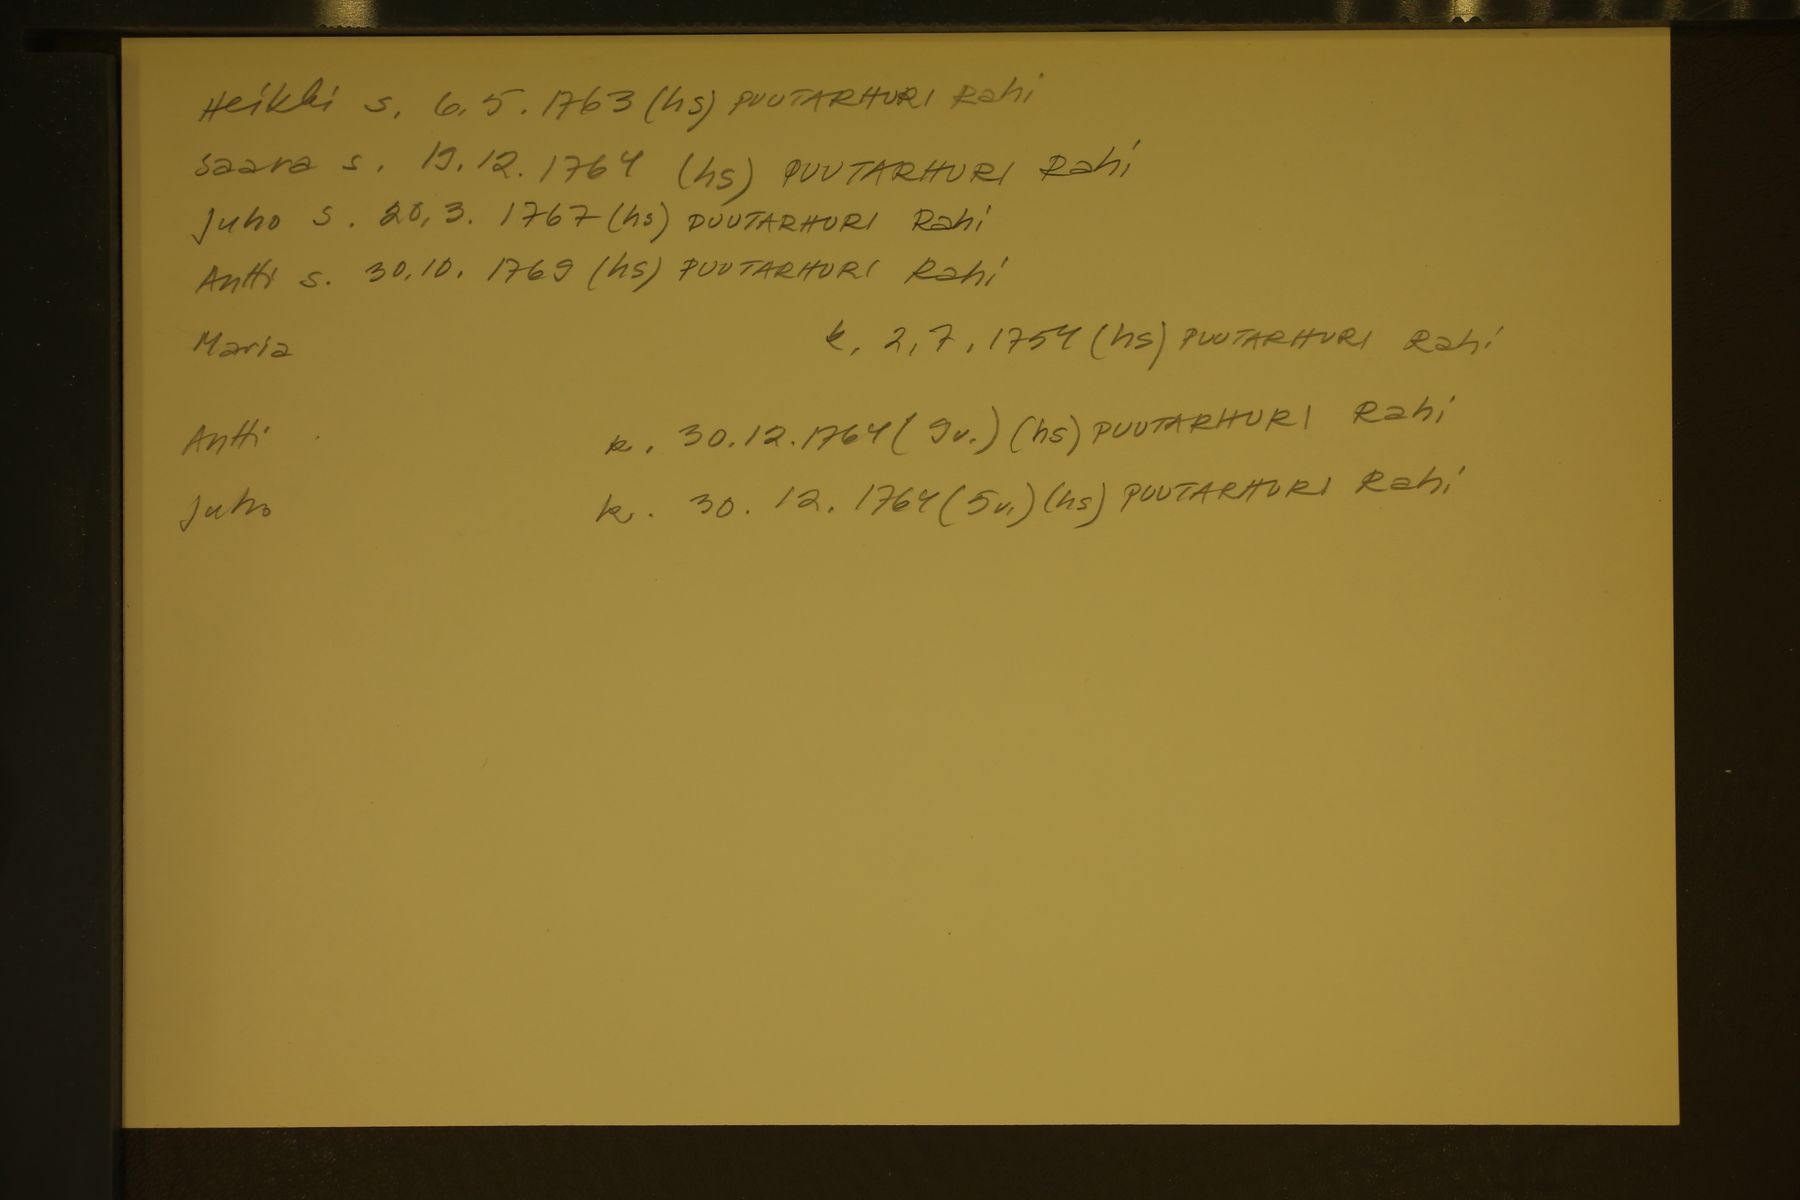 Heikki s. 6.5.1763 (hs) PUUTARHURI Rahi
Saara s. 19.12.1764 (hs) PUUTARHURI Rahi
Juho s. 20.3.1767 (hs) PUUTARHURI Rahi
Antti s. 30.10.1769 (hs) PUUTARHURI Rahi
Maria k. 2.7.1754 (hs) PUUTARHURI Rahi
Antti k. 30.12.1764 (9v.) (hs) PUUTARHURI Rahi
Juho k. 30.12.1764 (5v.) (hs) PUUTARHURI Rahi